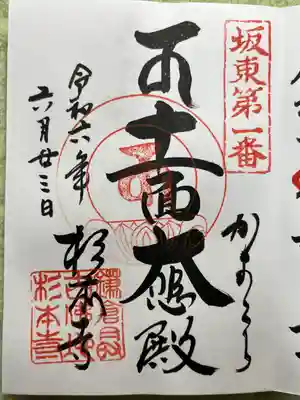 坂東第一番
かまくら
十一面大悲殿
杉本寺
令和六年
六月廿三日
鎌倉最
古佛地
杉本寺